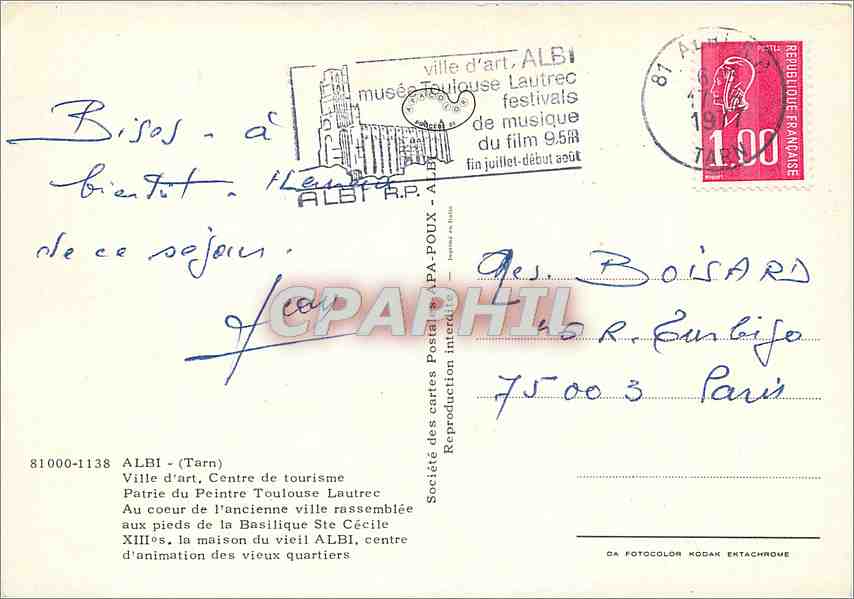 ville d'art, ALBI
musée Toulouse Lautrec
festivals
de musique
du film 9,5m
fin juillet-début août
ALBI R.P.
81 ALBI
TARN
POSTES
REPUBLIQUE FRANÇAISE
1,00
Bisos - à
bientôt.
de ce séjour.
Jean
BOISARD
R. Turbigo
75003 Paris
CPAPHIL
81000-1138 ALBI - (Tarn)
Ville d'art, Centre de tourisme
Patrie du Peintre Toulouse Lautrec
Au coeur de l'ancienne ville rassemblée
aux pieds de la Basilique Ste Cécile
XIIIos. la maison du vieil ALBI, centre
d'animation des vieux quartiers
Société des cartes Postales APA-POUX - ALBI
Reproduction interdite — Imprimé en Italie
CA FOTOCOLOR KODAK EKTACHROME